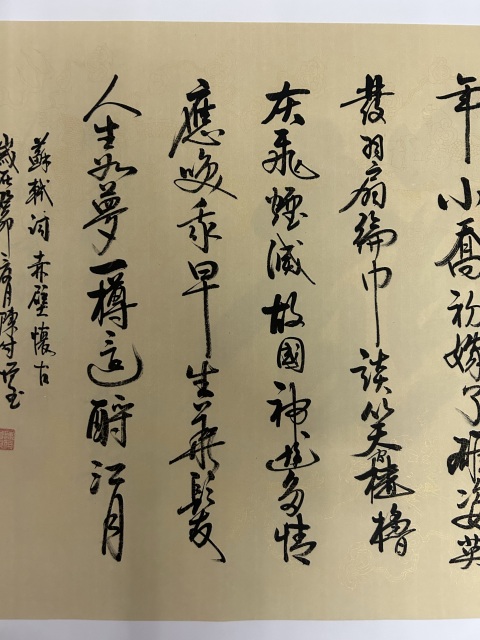 年小喬初嫁了雄姿英
發羽扇綸巾談笑間檣櫓
灰飛煙滅故國神遊多情
應咲我早生華髮
人生如夢一樽還酹江月
蘇軾詞赤壁懷古
歲在癸卯月陳